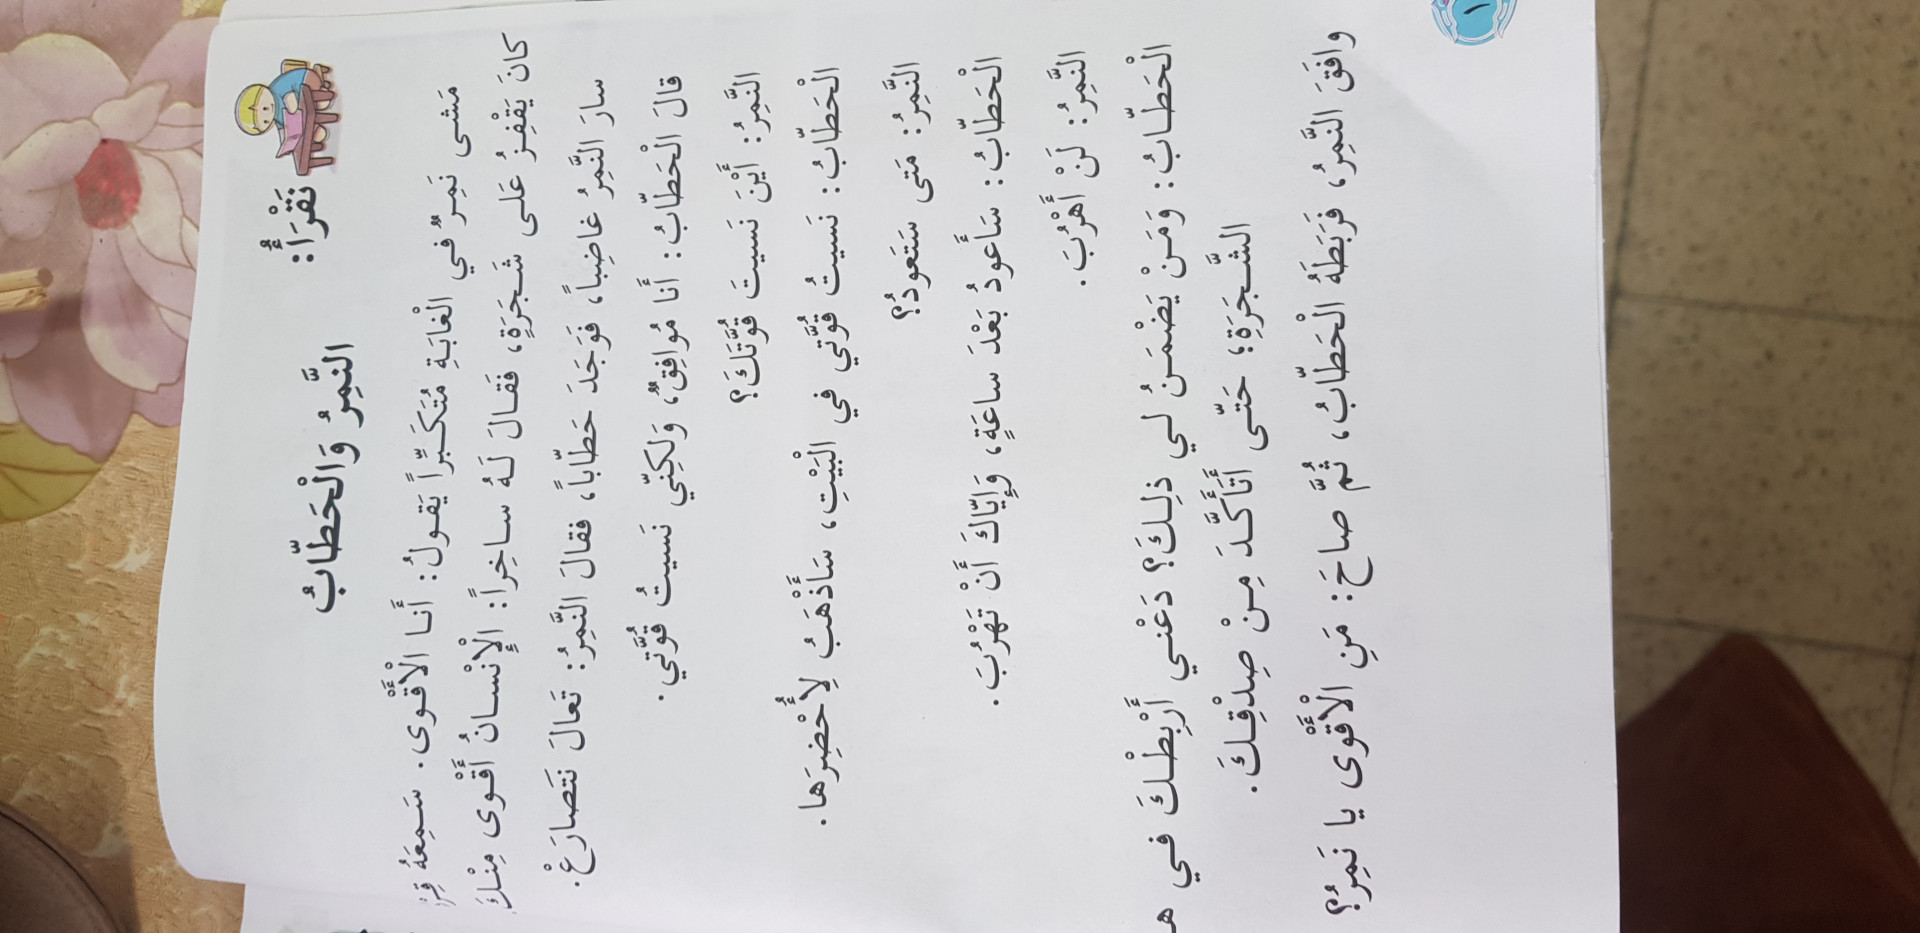 نَقْرَأُ:
النَّمِرُ وَالْحَطّابُ
مَشى نَمِرٌ في الْغابَةِ مُتَكَبِّراً يَقولُ: أَنا الْأَقْوى. سَمِعَهُ
كانَ يَقْفِزُ عَلى شَجَرَةٍ، فَقالَ لَهُ ساخِراً: الْإِنْسانُ أَقْوى مِنْكَ
سارَ النَّمِرُ غاضِباً، فَوَجَدَ حَطّاباً، فقالَ النَّمِرُ: تَعالَ نَتَصارَعْ.
قالَ الْحَطّابُ: أَنا مُوافِقٌ، وَلكِنّي نَسيتُ قُوَّتي.
النَّمِرُ: أَيْنَ نَسيتَ قُوَّتَكَ؟
الْحَطّابُ: نَسيتُ قُوَّتي في الْبَيْتِ، سَأَذْهَبُ لِأُحْضِرَها.
النَّمِرُ: مَتى سَتَعودُ؟
الْحَطّابُ: سَأَعودُ بَعْدَ ساعَةٍ، وَإِيّاكَ أَنْ تَهْرُبَ.
النَّمِرُ: لَنْ أَهْرُبَ.
الْحَطّابُ: وَمَنْ يَضْمَنُ لي ذلِكَ؟ دَعْني أَرْبِطْكَ في
الشَّجَرَةِ؛ حَتّى أَتَأَكَّدَ مِنْ صِدْقِكَ.
وافَقَ النَّمِرُ، فَرَبَطَهُ الْحَطّابُ، ثُمَّ صاحَ: مَنِ الْأَقْوى يا نَمِرُ؟
١